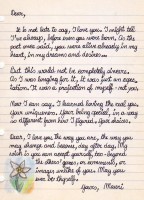 Dear,
It is not late to say, I love you. I might tell
I've always, before even you were born, As the
poet once said, you were alive already in my
heart, in my dreams and desires...
But this would not be completely sincere.
As I was longing for it, It was just an expec-
tation. It was a projection of myself - not you.
Now I can say, I learned loving the real you,
your uniqueness, your being special, in a way
is different from how I figured, your choices.
Dear, I love you the way you are, the way you
may change and become, day after day. My
wish is you can accept yourself, too - beyond
the others' gazes, or comments, or
images unlike of yours. May you
ever be thyself.
Yours,